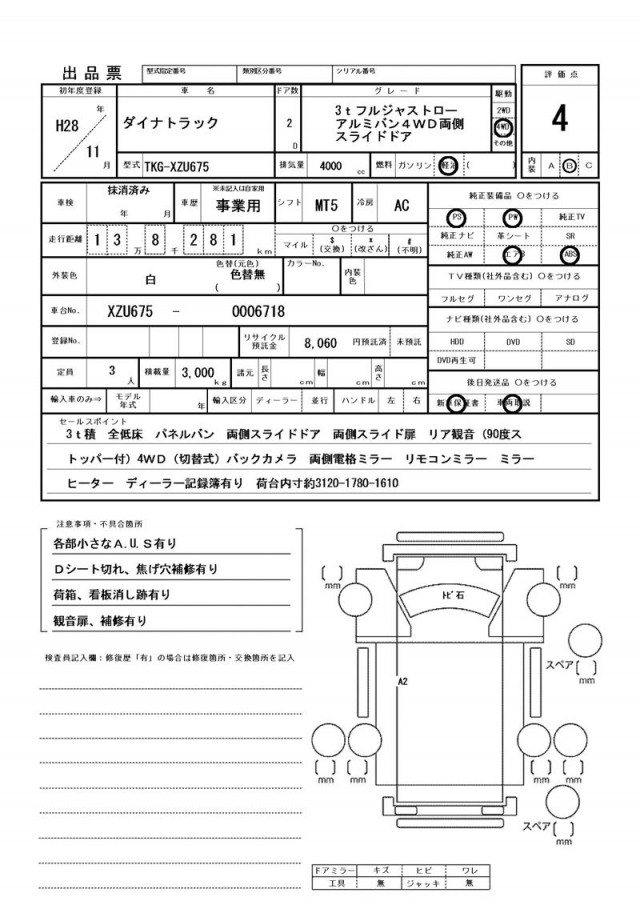 出品票 型式指定番号 類別区分番号 シリアル番号 評価点
初年度登録 車名 ドア数 グレード 駆動
H28 年 11 月 ダイナトラック 2 D 3tフルジャストロー アルミバン4WD両側 スライドドア 2WD 4WD その他 4
型式 TKG-XZU675 排気量 4000 cc 燃料 ガソリン 軽油 ( ) 内装 A B C
車検 抹消済み 年 月 車歴 ※未記入は自家用 事業用 シフト MT5 冷房 AC 純正装備品 〇をつける
PS PW 純正TV
走行距離 13万8千281km 〇をつける マイル $(交換) *(改ざん) #(不明) 純正ナビ 革シート SR
純正AW エアB ABS
外装色 白 色替(元色) ( 色替無 ) カラーNo. 内装色 TV種類(社外品含む) 〇をつける
フルセグ ワンセグ アナログ
車台No. XZU675 - 0006718 ナビ種類(社外品含む) 〇をつける
登録No. リサイクル預託金 8,060 円預託済 未預託 HDD DVD SD
DVD再生可
定員 3 人 積載量 3,000 kg 諸元 長さ cm 幅 cm 高さ cm 後日発送品 〇をつける
輸入車のみ⇒ モデル年式 年 輸入区分 ディーラー 並行 ハンドル 左 右 新車保証書 車両取説
セールスポイント
3t積 全低床 パネルバン 両側スライドドア 両側スライド扉 リア観音（90度ス
トッパー付）4WD（切替式）バックカメラ 両側電格ミラー リモコンミラー ミラー
ヒーター ディーラー記録簿有り 荷台内寸約3120-1780-1610
注意事項・不具合箇所
各部小さなA.U.S有り
Dシート切れ、焦げ穴補修有り
荷箱、看板消し跡有り
観音扉、補修有り
検査員記入欄：修復歴「有」の場合は修復箇所・交換箇所を記入
[ ] mm ﾄﾋﾞ石 [ ] mm
スペア [ ] mm
A2
[ ] mm [ ] mm [ ] mm [ ] mm
スペア [ ] mm
ドアミラー キズ ヒビ ワレ
工具 無 ジャッキ 無